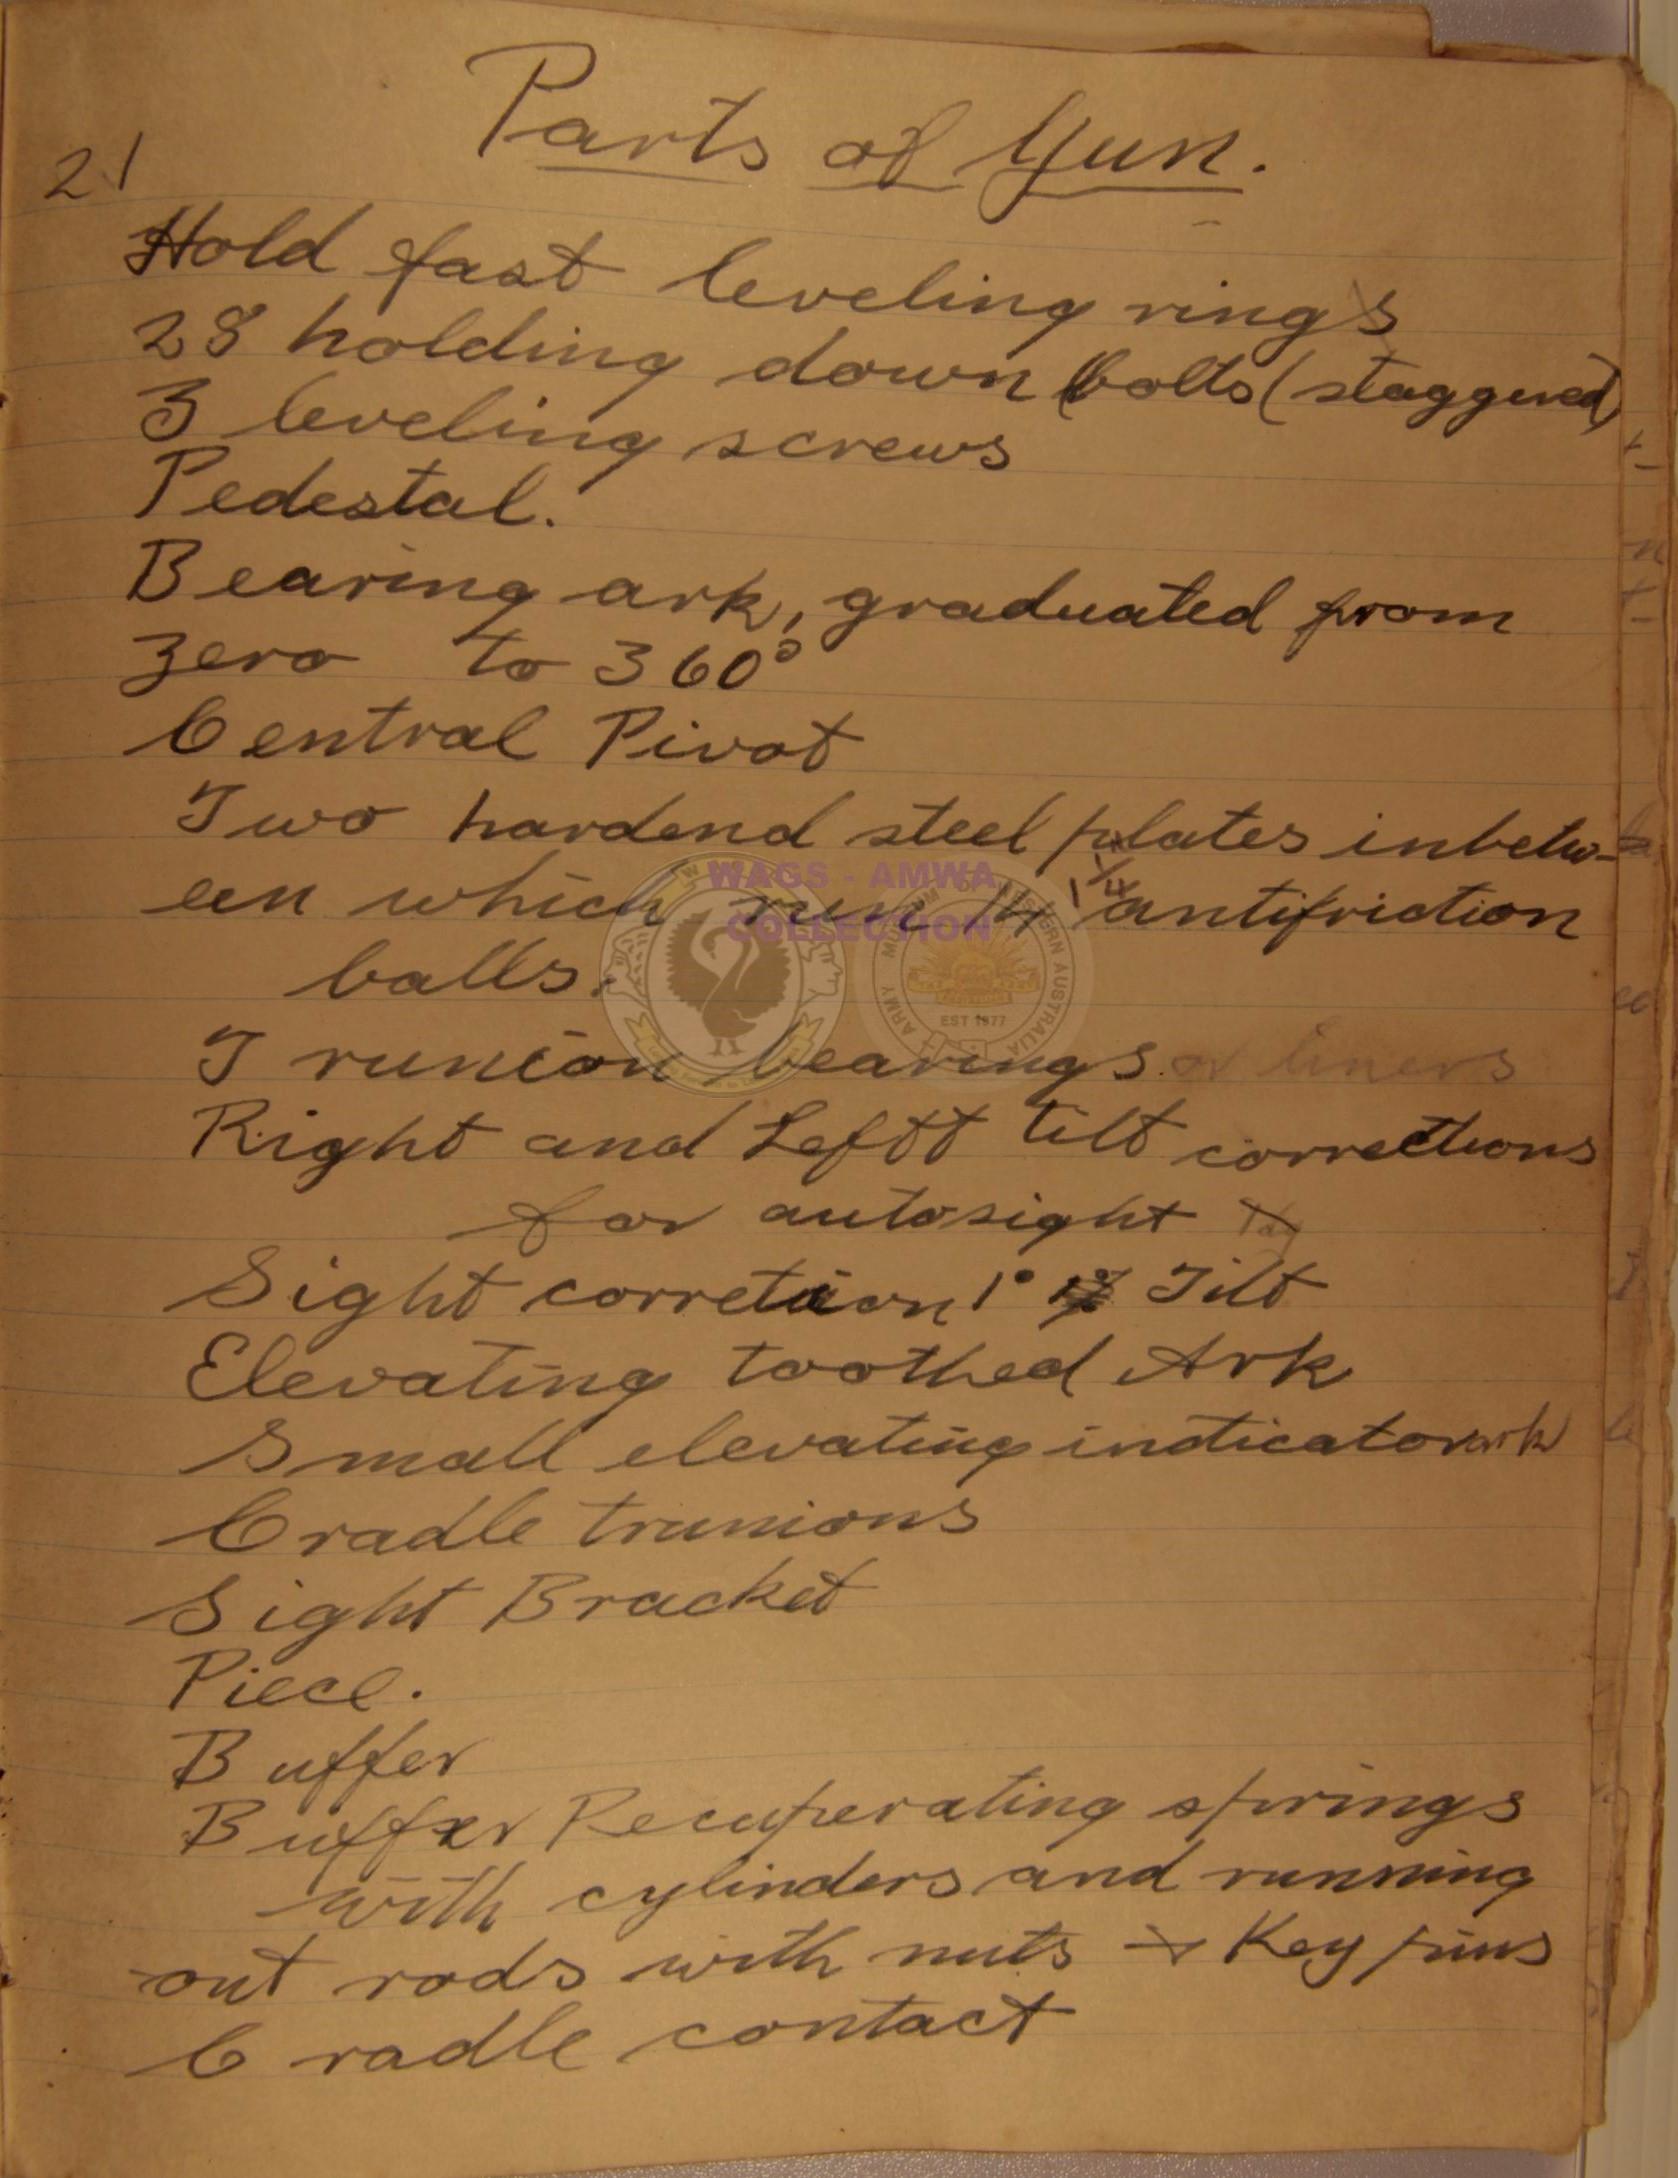 Parts of Gun.
21
Hold fast leveling rings
28 holding down bolts (staggered)
3 leveling screws
Pedestal.
Bearing ark, graduated from
zero to 360°
Central Pivot
Two hardend steel plates inbetw-
een which run 1/4 antifriction
balls.
WAGS - AMWA
COLLECTION
ARMY MUSEUM OF WESTERN AUSTRALIA
EST 1977
Trunion bearings or liners
Right and Leftt tilt corrections
for autosight
Sight corretion 1° Tilt
Elevating toothed Ark
Small elevating indicator ark
Cradle trunions
Sight Bracket
Piece.
Buffer
Buffer Recuperating springs
with cylinders and running
out rods with nuts + Key pins
Cradle contact